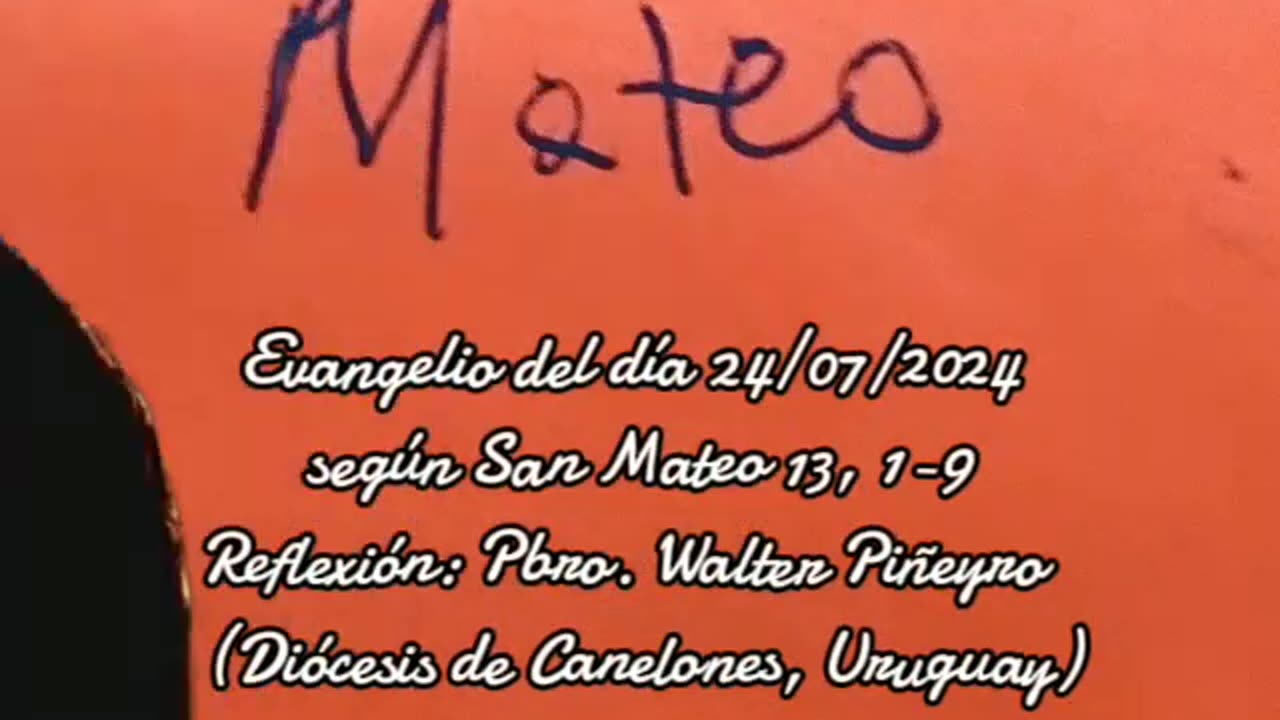 Mateo
Evangelio del día 24/07/2024
según San Mateo 13, 1-9
Reflexión: Pbro. Walter Piñeyro
(Diócesis de Canelones, Uruguay)